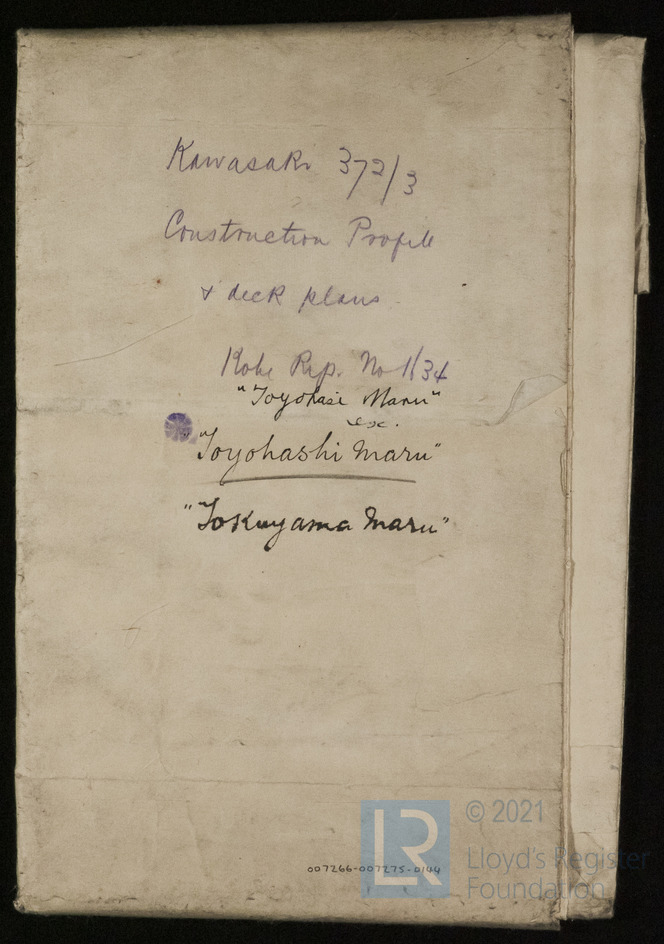 Kawasaki 372/3
Construction Profile
& deck plans.
Kobe Rep. No 1134
"Toyohasi Maru"
ex.
"Toyohashi Maru"
"Tokuyama Maru"
007266-007275-0144
LR
© 2021
Lloyd's Register
Foundation